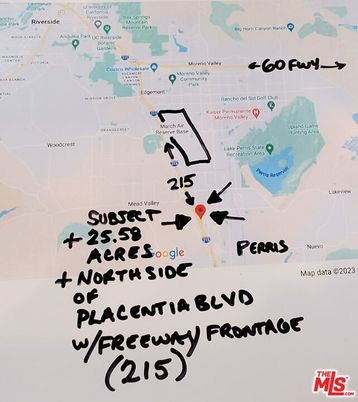 University of California, Riverside
Box Springs Mountain Reserve Park
Riverside
Andulka Park
UC Riverside Botanic Gardens
Big Horn Canyon Reserve
Costco Wholesale
Moreno Valley
60 FWY
Moreno Valley Community Park
Edgemont
Rancho del Sol Golf Club
Kaiser Permanente Moreno Valley
March Air Reserve Base
ORANGECREST
Upland Game Hunting Area
Woodcrest
Lake Perris State Recreation Area
Perris Reservoir
LAKEVIEW
215
Mead Valley
SUBJECT
+ 25.58
ACRES
Google
PERRIS
Nuevo
Map data ©2023
+ NORTH SIDE
OF
PLACENTIA BLVD
W/FREEWAY FRONTAGE
(215)
THE
MLS
.com